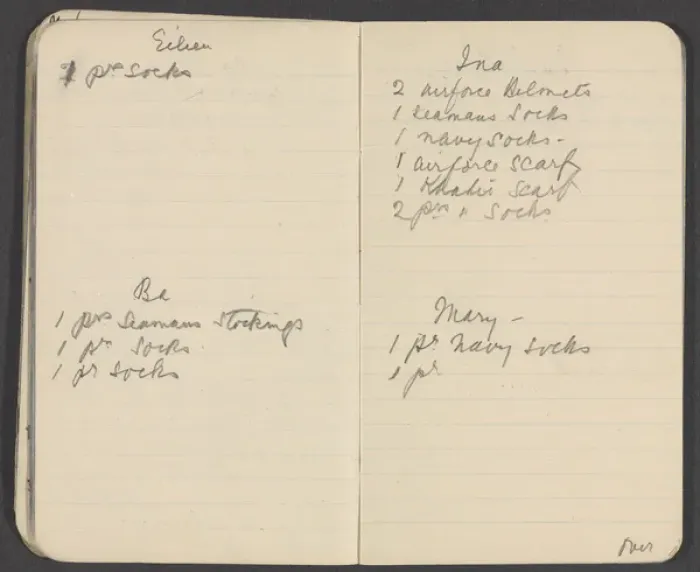 Eileen
2 prs Socks
Ba
1 prs Seamans Stockings
1 pr Socks
1 pr Socks
Ina
2 airforce Helmets
1 Seamans Socks
1 navy Socks -
1 airforce Scarf
1 Khaki Scarf
2 prs " Socks
Mary -
1 pr Navy Socks
1 pr
Over